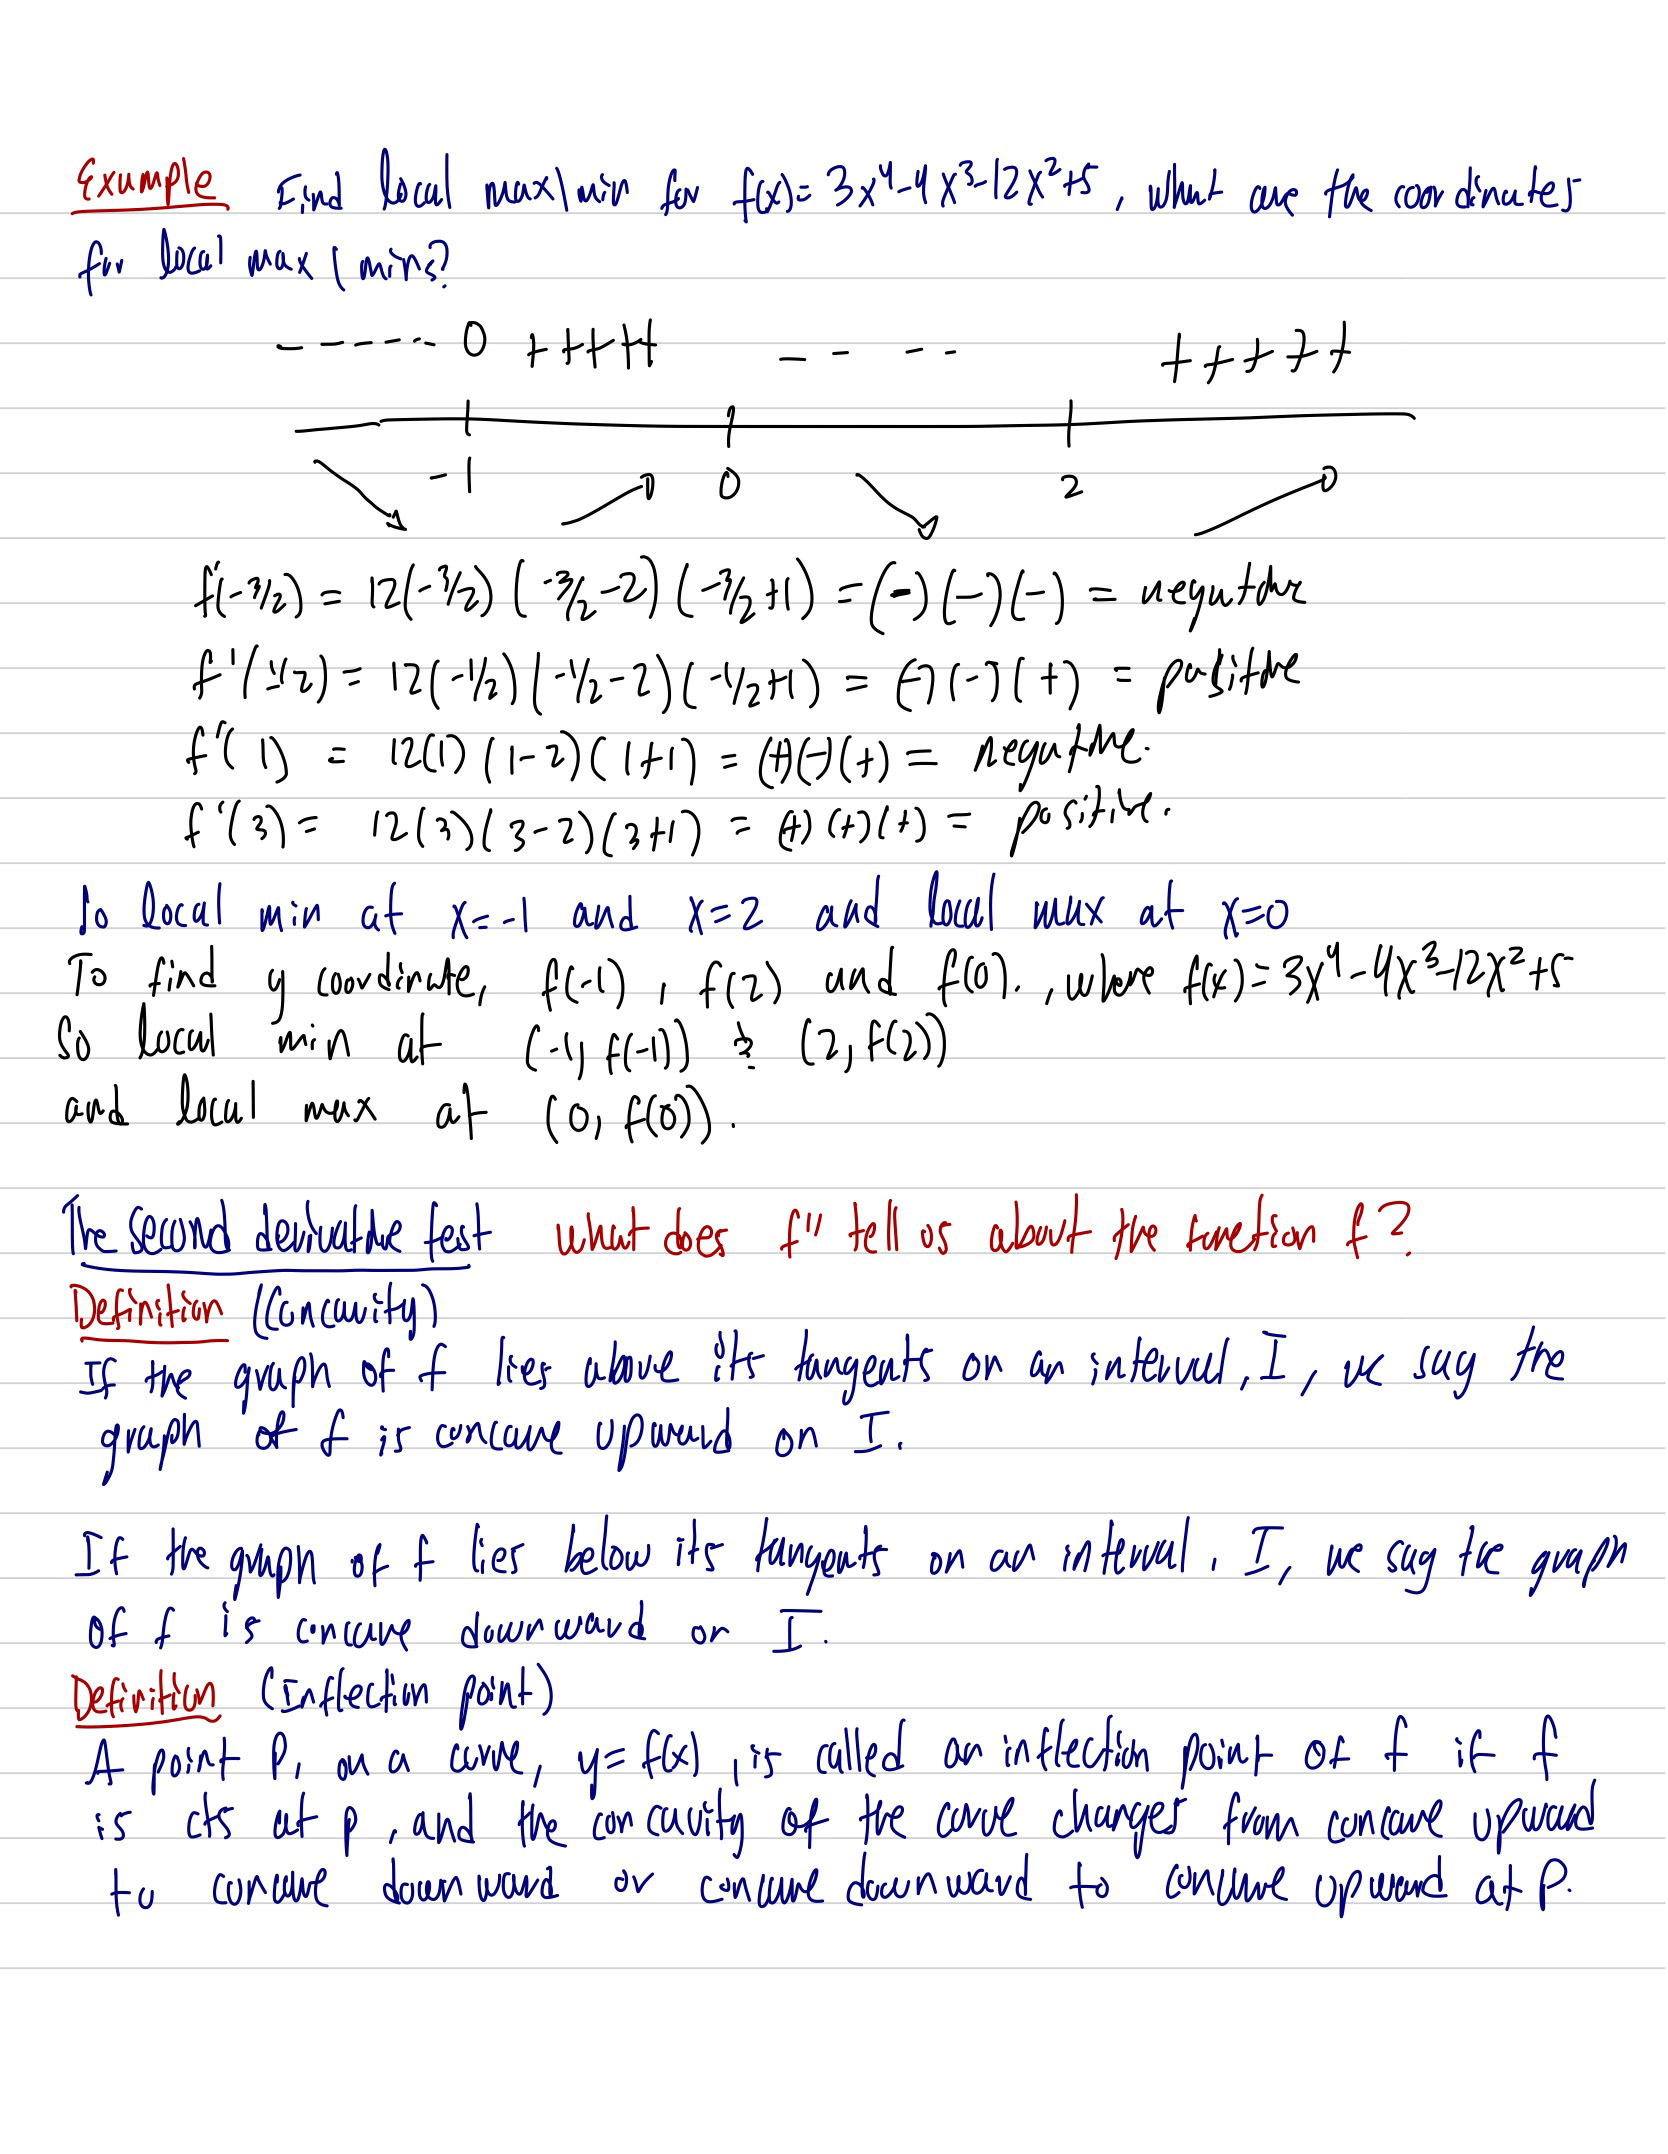 Example Find local max\min for f(x)= 3x⁴-4x³-12x²+5, what are the coordinates
for local max ( mins?
- - - - - - - 0 +++++ - - - - +++++
-1 0 2
f'(-3/2) = 12(-3/2) (-3/2-2) (-3/2+1) = (-)(-)(-) = negative
f'(-1/2) = 12(-1/2)(-1/2-2)(-1/2+1) = (-)(-)(+) = positive
f'(1) = 12(1) (1-2)(1+1) = (+)(-)(+) = negative.
f'(3) = 12(3)(3-2)(3+1) = (+)(+)(+) = positive.
So local min at x=-1 and x=2 and local max at x=0
To find y coordinate, f(-1), f(2) and f(0)., where f(x)=3x⁴-4x³-12x²+5
So local min at (-1, f(-1)) & (2, f(2))
and local max at (0, f(0)).
The second derivative test what does f'' tell us about the function f?
Definition (Concavity)
If the graph of f lies above its tangents on an interval, I, we say the
graph of f is concave upward on I.
If the graph of f lies below its tangents on an interval, I, we say the graph
of f is concave downward on I.
Definition (Inflection point)
A point P, on a curve, y=f(x), is called an inflection point of f if f
is cts at p, and the concavity of the curve changes from concave upward
to concave downward or concave downward to concave upward at P.